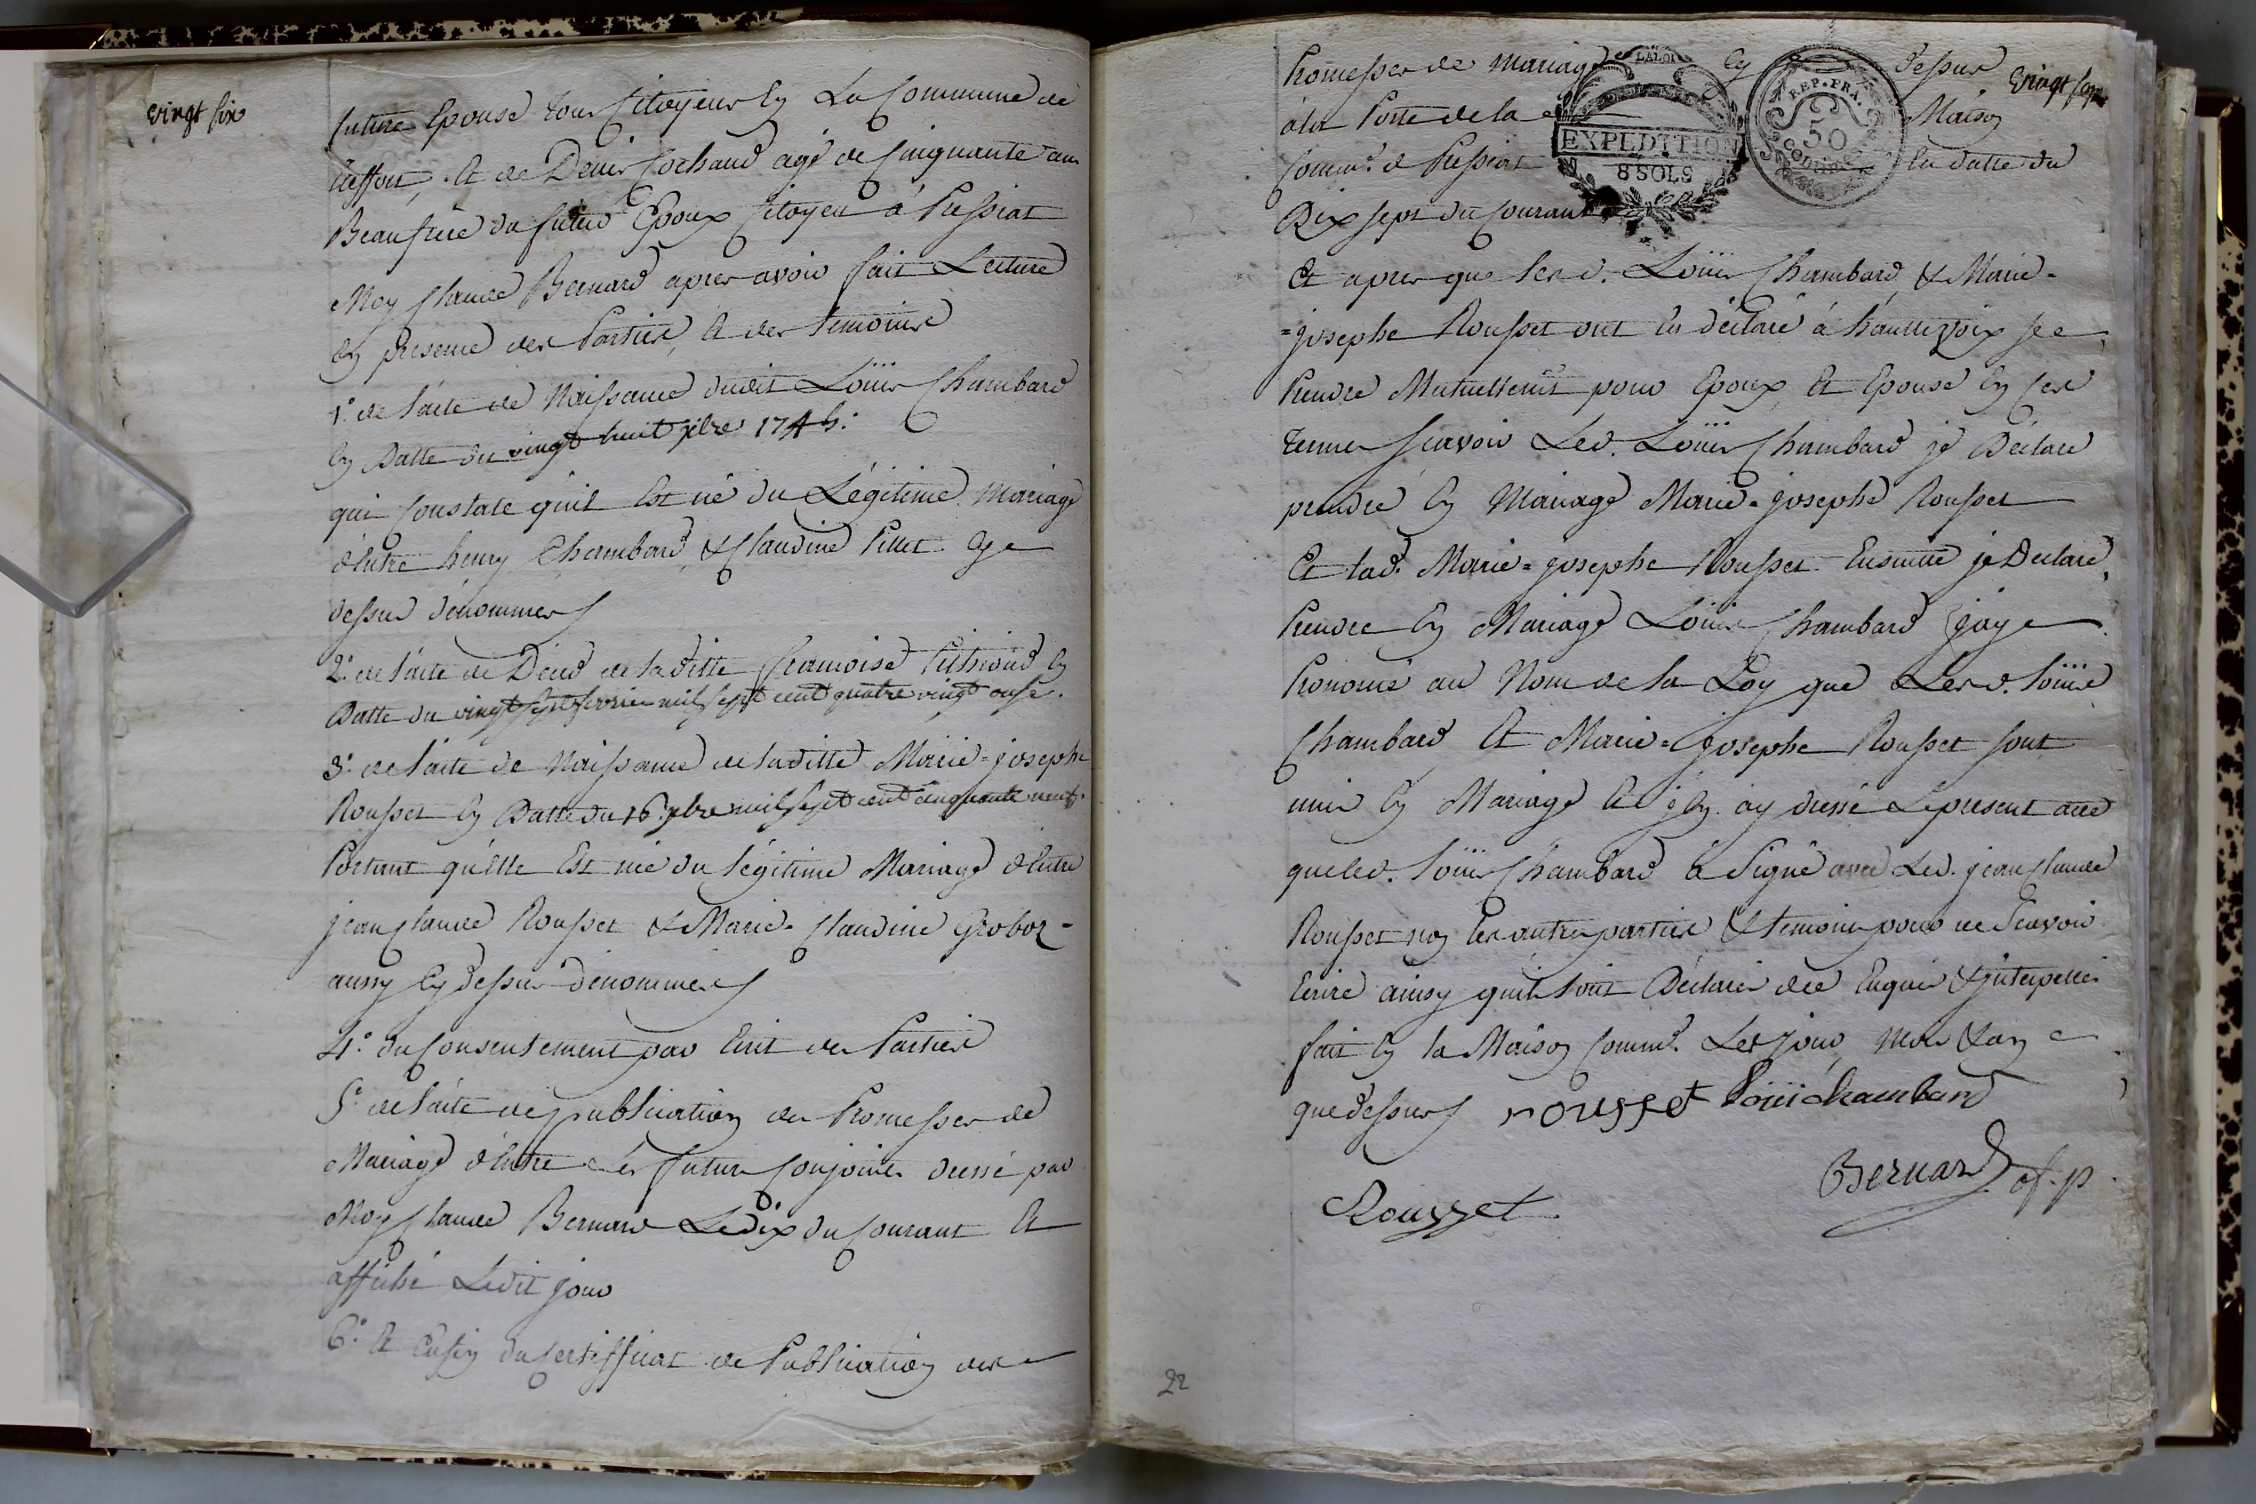 vingt six
future Epouse tous Citoyens Ey La Commune de
Et de Denis Cochaud agé de Cinquante ans
Beaufrere du futur Epoux Citoyen á Pressiat
Moy Claude Bernard apres avoir fait Lecture
Ey presence des Parties, Et des temoins
1.° de l'acte de Naissance dudit Loüis Chambard
Ey Datte du vingt huit 1745:
qui Constate qu'il Est né du Légitime Mariage
d'Entre henry Chambard & Claudine Pillet Cy
dessus dénommes
2.° de l'acte de Deces de laditte francoise Ey
Datte du vingt sept fevrier mil sept cent quatre vingt onse.
3.° de l'acte de Naissance de laditte Marie=josephe
Rousset Ey Datte du 16. mil sept cent cinquante neuf.
Portant qu'Elle Est née du légitime Mariage d'Entre
jean Claude Rousset & Marie-Claudine Groboz-
aussy Cy dessus dénommes
4.° du Consentement par Ecrit des Parties
5.° de l'acte de publication des Promesses de
Mariage d'Entre Les futurs Conjoints dressé par
Moy Claude Bernard Le dix du Courant Et
affiché Ledit jour
6.° Et Enfin du Certifficat de Publication des
vingt sept
Promesses de Mariage Cy dessus
á la Porte de la Maison
Comm.e de Pressiat En datte du
Dix sept du Courant
LA LOI
EXPEDITION
8 SOLS
REP. FRA.
50
Centimes
Et apres que Lesd. Loüis Chambard & Marie-
=josephe Rousset ont Eu déclaré á haute voix se
Prendre Mutuellem.t pour Epoux Et Epouse Ey Ces
termes Scavoir Led. Loüis Chambard je Déclare
prendre Ey Mariage Marie=josephe Rousset
Et lad. Marie=josephe Rousset Ensuitte je Declare
Prendre Ey Mariage Loüis Chambard jay
Prononcé au Nom de la Loy que Lesd. Loüis
Chambard Et Marie=josephe Rousset sont
unis Ey Mariage Et j'Ey ay dressé Le present acte
que led. Loüis Chambard á Signé avec Led. jean Claude
Rousset noy les autres parties & temoins pour ne Scavoir
Ecrire ainsy quils ont Déclarés de ce Enquis & interpellés
fait Ey la Maison Comm.e Les jour mois & an
que dessus rousset Loüi chambard
Bernard of. p.
Rousset
22